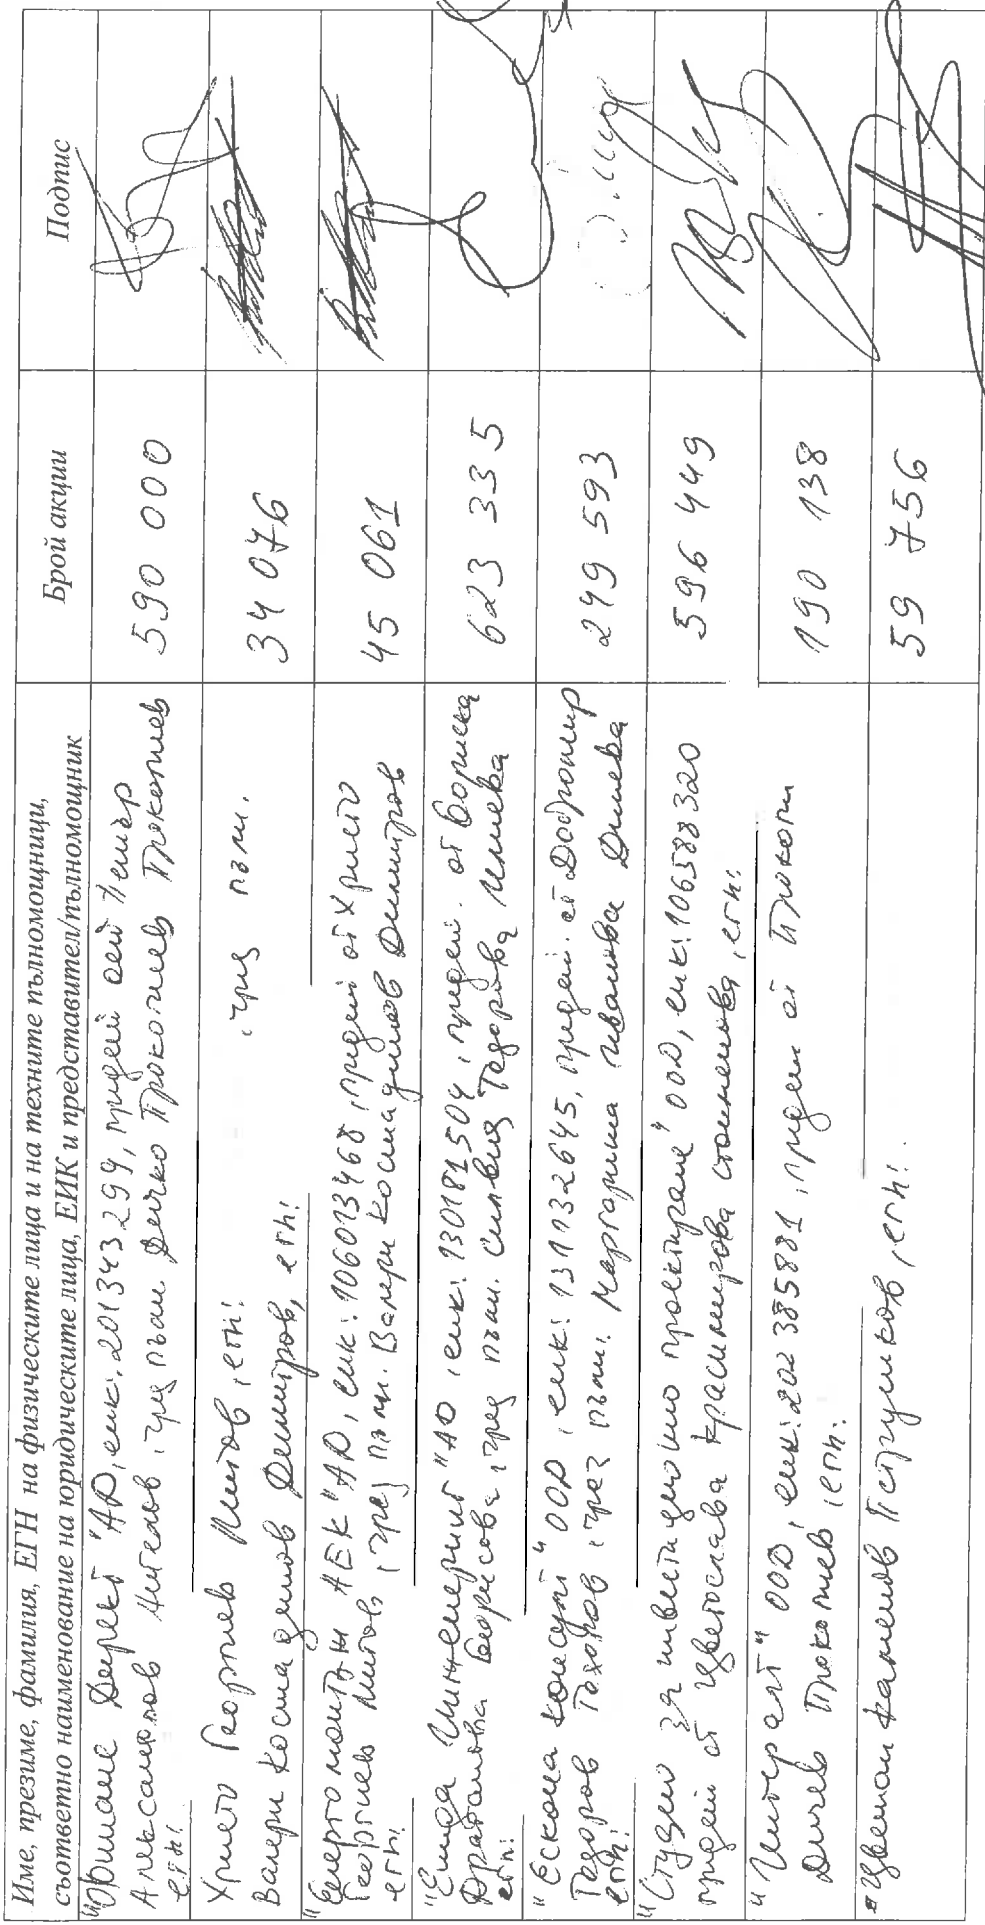 Име, презиме, фамилия, ЕГН на физическите лица и на техните пълномощници,
съответно наименование на юридическите лица, ЕИК и представител/пълномощник
Брой акции
Подпис
Директ" АД, еик: 201343299, предст. от Петър
Ангелов, чрез пълн. Дечко Прокопиев Прокопиев
егн:
590 000
Христо Георгиев Митов, егн: , чрез пълн.
Валери Костадинов Димитров, егн:
34 076
"Енергомонтаж АЕК" АД, еик: 106013468, предст. от Христо
Георгиев Митов, чрез пълн. Валери Костадинов Димитров
егн:
45 061
Инженеринг" АД, еик: 130181504, предст. от
Борисова, чрез пълн. Силвия Тодорова Илиева
егн:
623 335
"Ескона консулт" ООД, еик: 131132645, предст. от Добромир
Тодоров Тодоров, чрез пълн. Маргарита Иванова Димева
егн:
249 593
"Студио за инвестиционно проектиране" ООД, еик: 106588320
предст. от Цветослава Красимирова, егн:
596 449
ООД, еик: 202385881, предст. от Прокопи
Дичев Прокопиев, егн:
190 138
Каменов, егн:
59 756